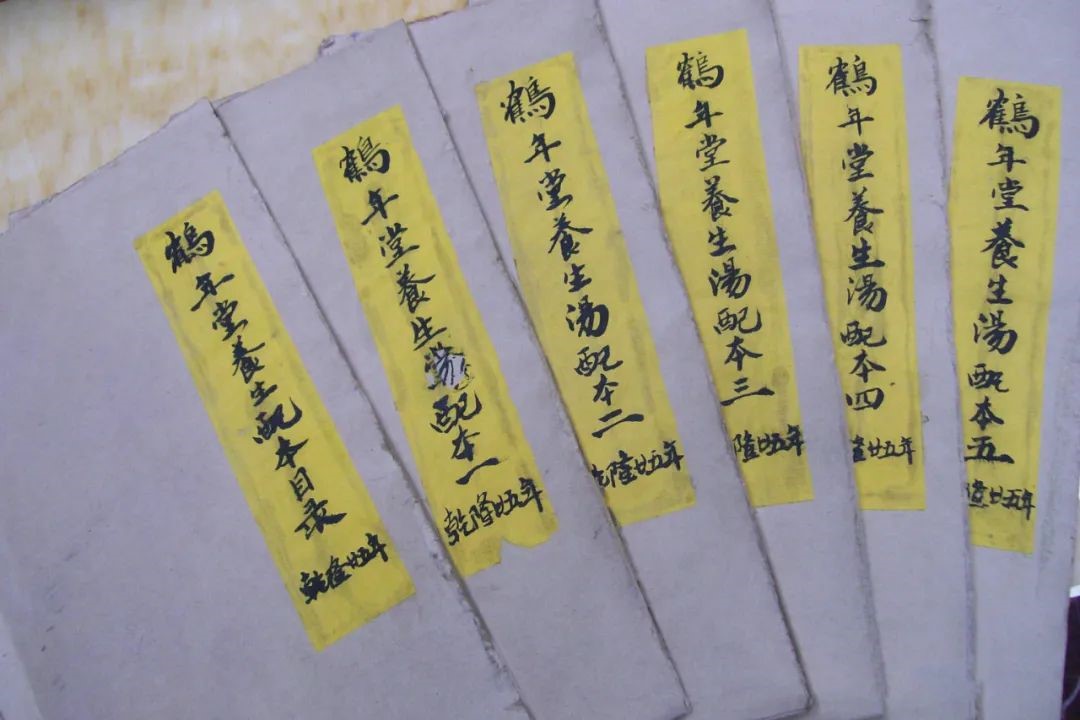 鶴年堂養生配本目录
乾隆廿五年
鶴年堂養生湯配本一
乾隆廿五年
鶴年堂養生湯配本二
乾隆廿五年
鶴年堂養生湯配本三
隆廿五年
鶴年堂養生湯配本四
隆廿五年
鶴年堂養生湯配本五
隆廿五年